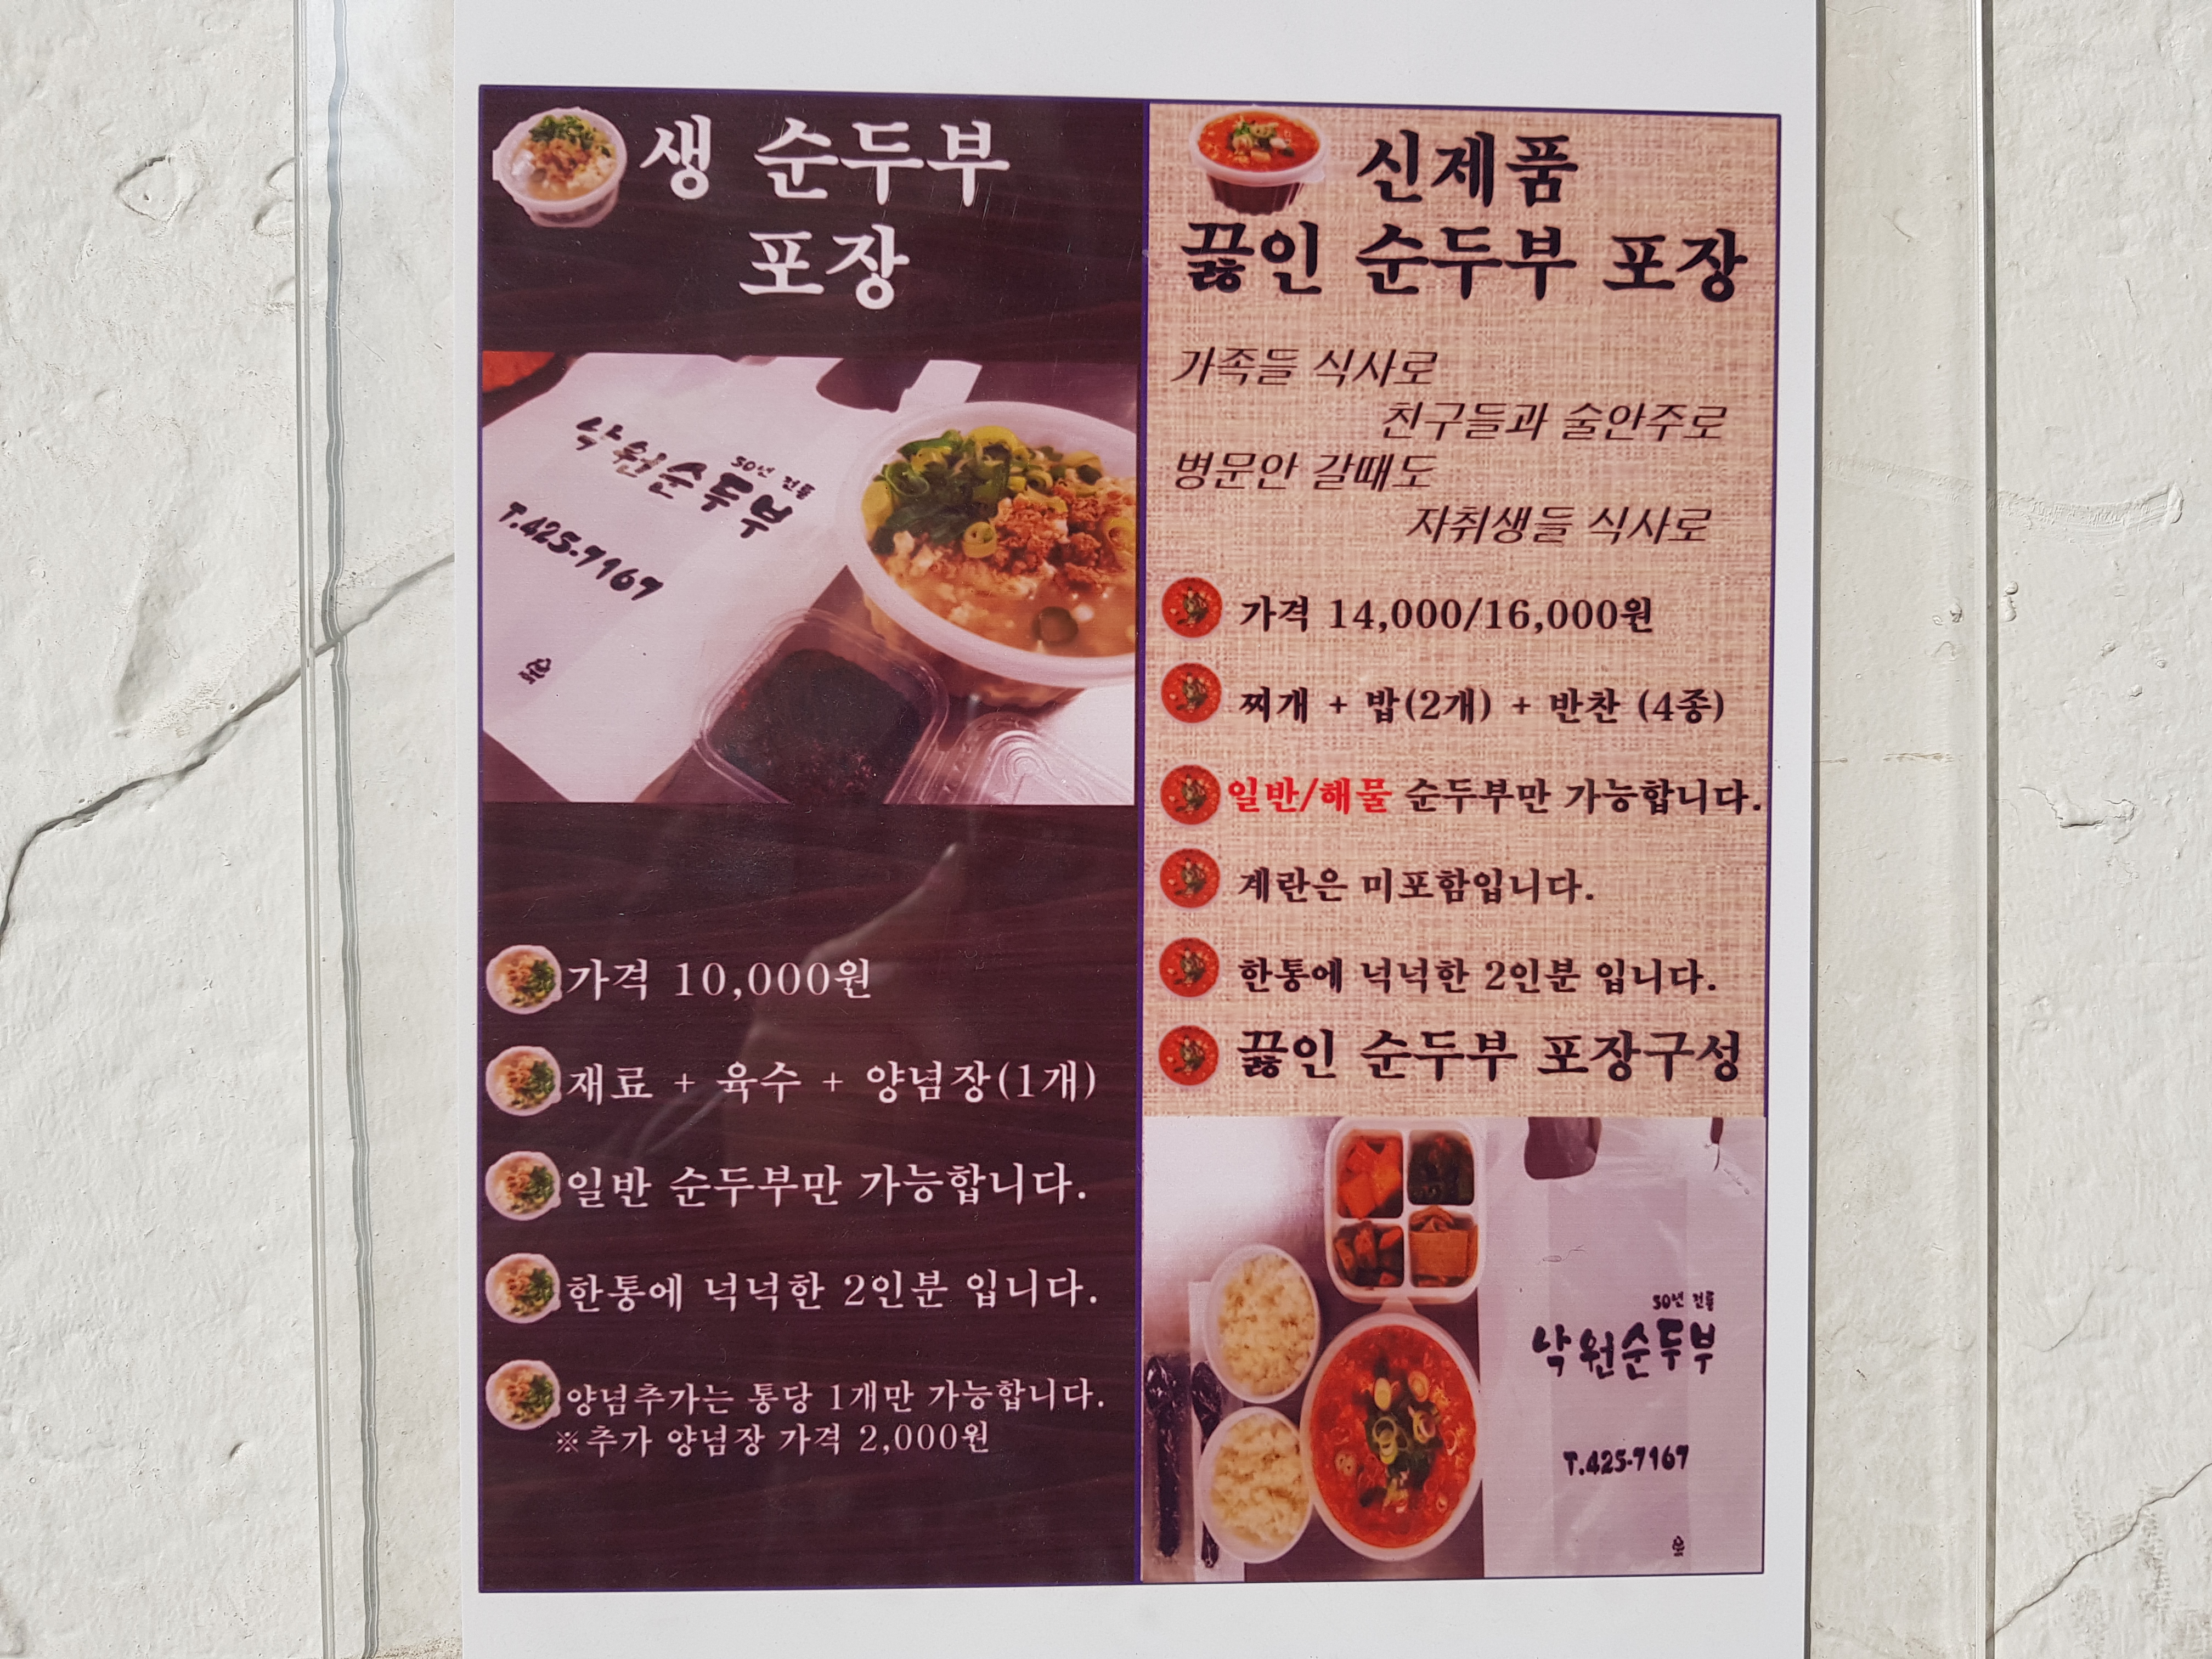 생 순두부
포장
50년 전통
낙원순두부
T.425-7167
가격 10,000원
재료 + 육수 + 양념장(1개)
일반 순두부만 가능합니다.
한통에 넉넉한 2인분 입니다.
양념추가는 통당 1개만 가능합니다.
※추가 양념장 가격 2,000원
신제품
끓인 순두부 포장
가족들 식사로
친구들과 술안주로
병문안 갈때도
자취생들 식사로
가격 14,000/16,000원
찌개 + 밥(2개) + 반찬 (4종)
일반/해물 순두부만 가능합니다.
계란은 미포함입니다.
한통에 넉넉한 2인분 입니다.
끓인 순두부 포장구성
50년 전통
낙원순두부
T.425-7167